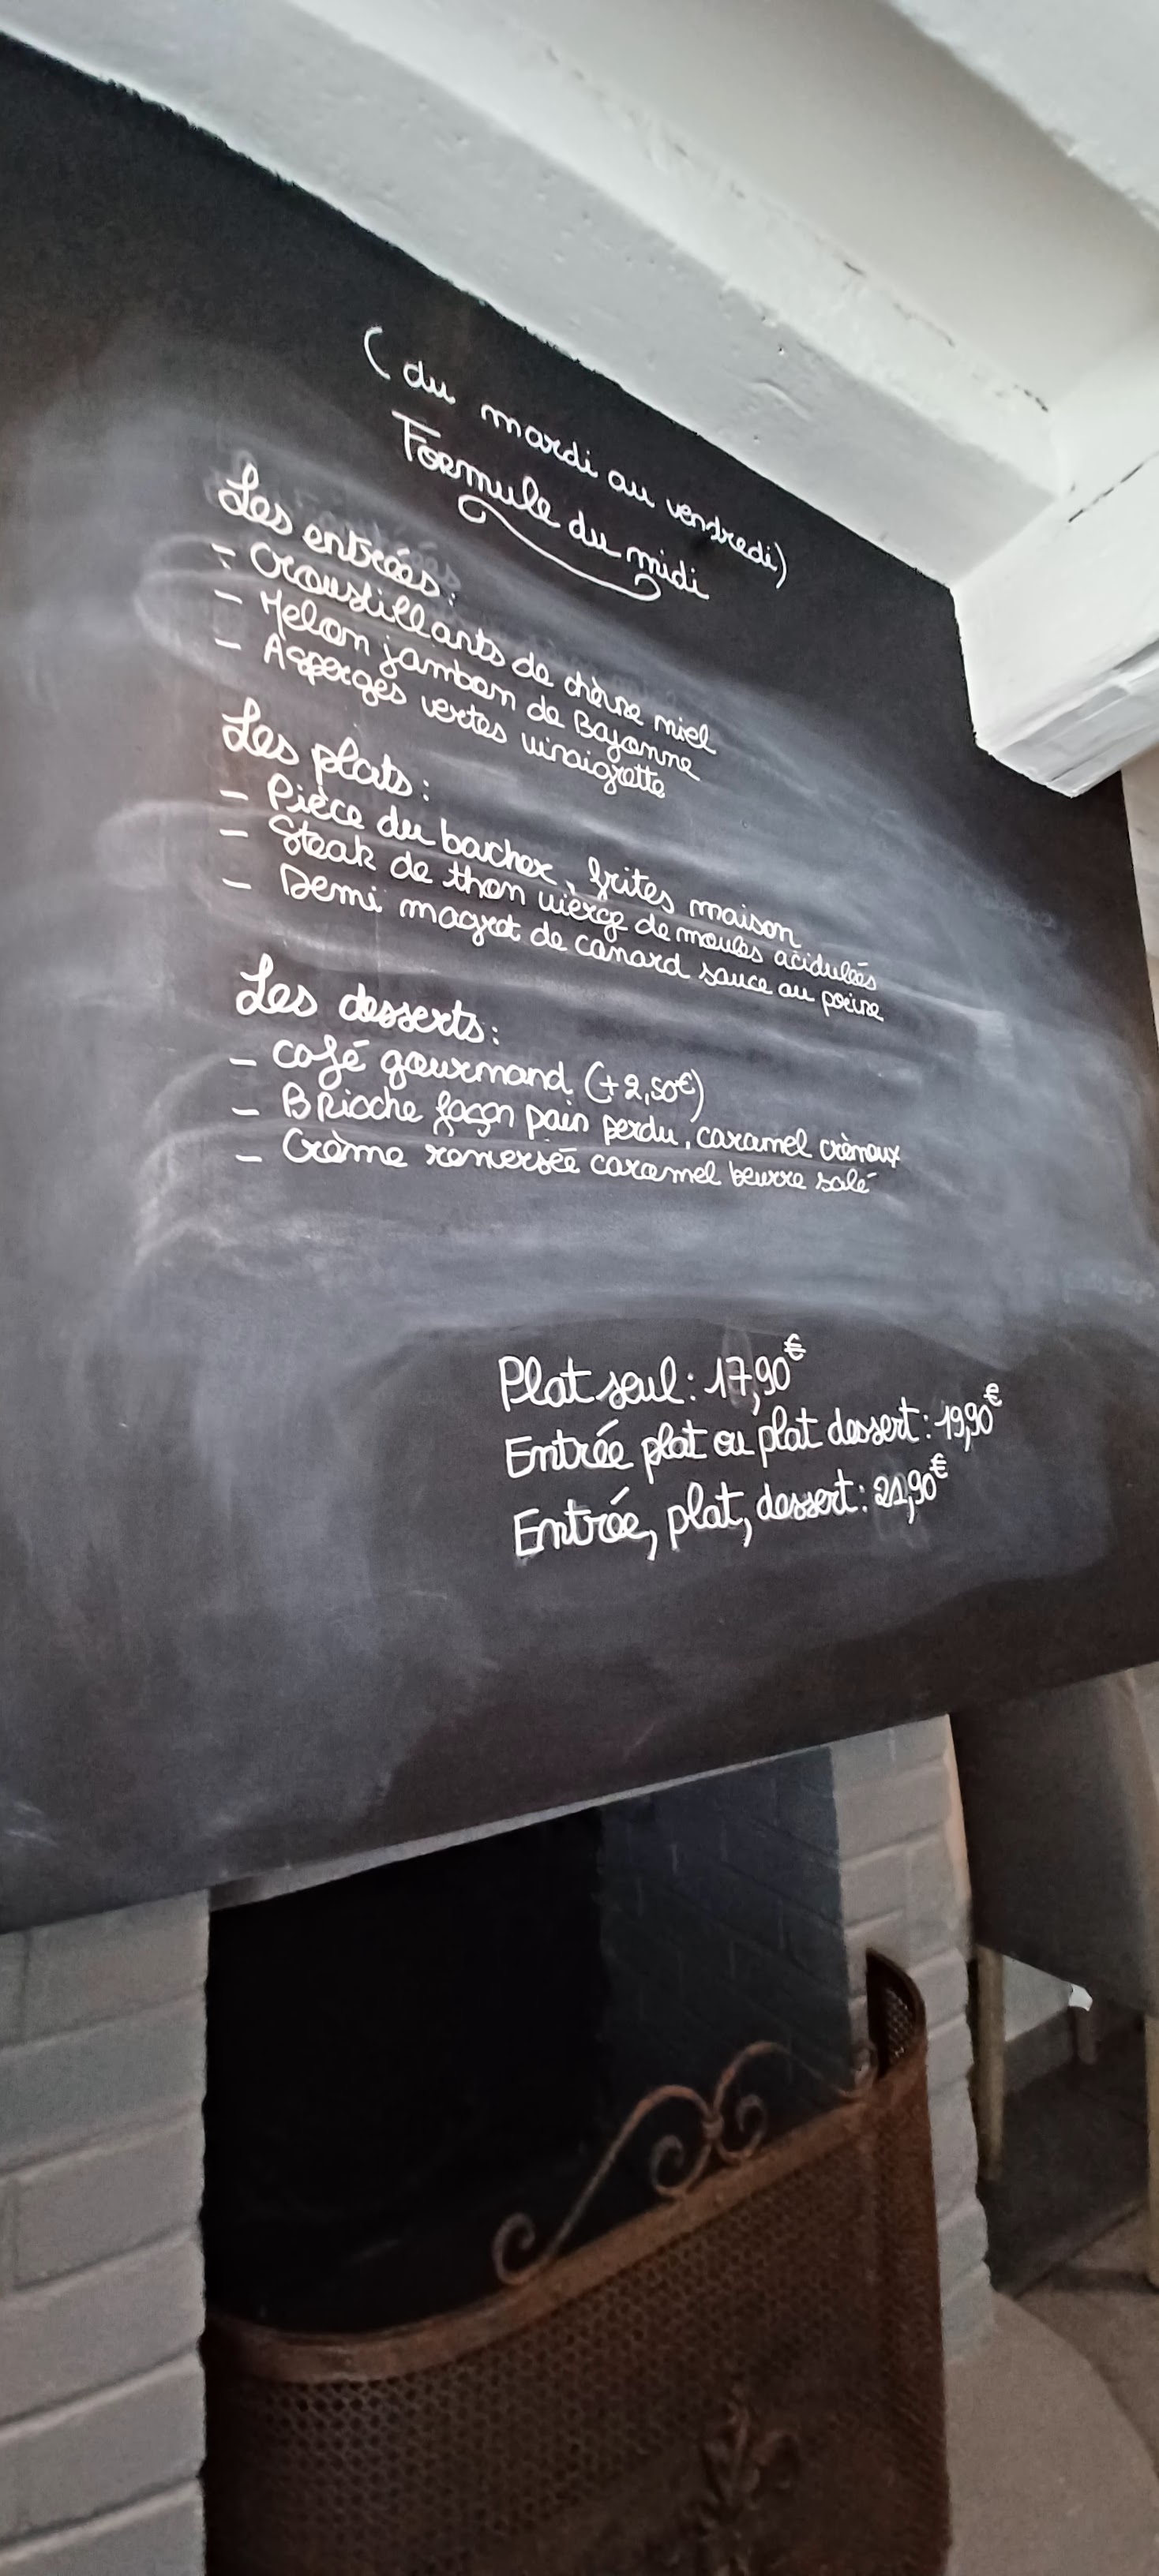 (du mardi au vendredi)
Formule du midi
Les entrées :
- Croustillants de chèvre miel
- Melon jambon de Bayonne
- Asperges vertes vinaigrette
Les plats :
- Pièce du bocher, frites maison
- Steak de thon vierge de moules acidulées
- Demi magret de canard sauce au poivre
Les desserts :
- Café gourmand (+2,50€)
- Brioche façon pain perdu, caramel crèmeux
- Crème renversée caramel beurre salé
Plat seul : 17,90€
Entrée plat ou plat dessert : 19,90€
Entrée, plat, dessert : 21,90€